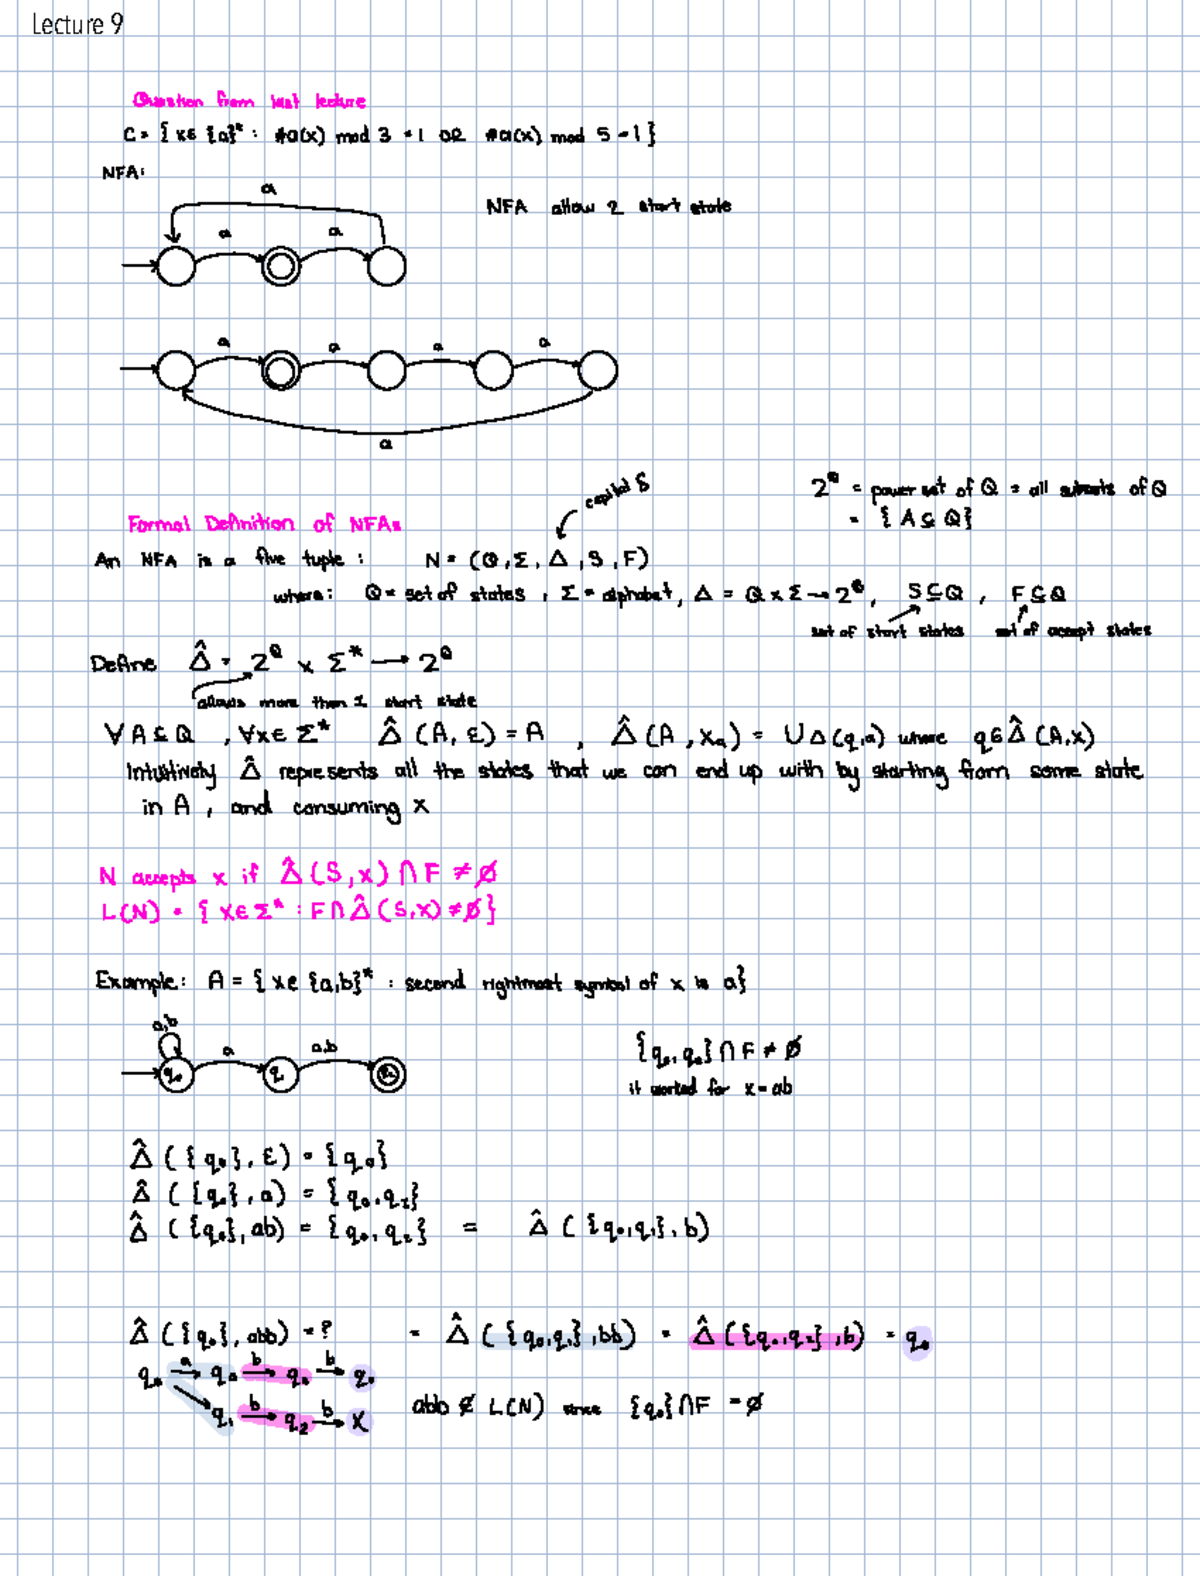 Lecture 9
Question from last lecture
C = { x ∈ {a}* : #a(x) mod 3 = 1 OR #a(x) mod 5 = 1 }
NFA:
a
NFA allow 2 start state
a a
a a a a
a
capital S
2^Q = power set of Q = all subsets of Q
= { A ⊆ Q }
Formal Definition of NFAs
An NFA is a five tuple : N = (Q, Σ, Δ, S, F)
where: Q = set of states , Σ = alphabet, Δ = Q x Σ → 2^Q, S ⊆ Q , F ⊆ Q
set of start states set of accept states
Define Δ̂ : 2^Q x Σ* → 2^Q
allows more than 1 start state
∀ A ⊆ Q , ∀x ∈ Σ* Δ̂ (A, ε) = A , Δ̂ (A, xa) = U Δ(q,a) where q ∈ Δ̂ (A,x)
Intuitively Δ̂ represents all the states that we can end up with by starting from some state
in A , and consuming x
N accepts x if Δ̂ (S,x) ∩ F ≠ ∅
L(N) = { x ∈ Σ* : F ∩ Δ̂ (S,x) ≠ ∅ }
Example: A = { x ∈ {a,b}* : second rightmost symbol of x is a}
a,b
a a,b
q₀ q₁ q₂
{q₀, q₂} ∩ F ≠ ∅
it worked for x = ab
Δ̂ ({q₀}, ε) = {q₀}
Δ̂ ({q₀}, a) = {q₀, q₁}
Δ̂ ({q₀}, ab) = {q₀, q₂} = Δ̂ ({q₀,q₁}, b)
Δ̂ ({q₀}, abb) = ? = Δ̂ ({q₀,q₁}, bb) = Δ̂ ({q₀,q₂}, b) = q₀
q₀ a→ q₀ b→ q₀ b→ q₀
q₁ b→ q₂ b→ X
abb ∉ L(N) since {q₀} ∩ F = ∅